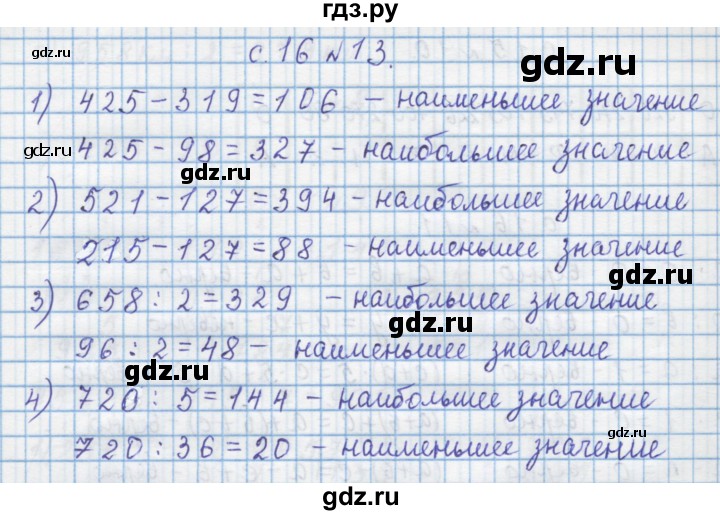 гдз.ру
с. 16 №13.
gdz.ru
gdz.ru
1) 425 - 319 = 106 - наименьшее значение
gdz.ru
425 - 98 = 327 - наибольшее значение
gdz.ru
2) 521 - 127 = 394 - наибольшее значение
215 - 127 = 88 - наименьшее значение
gdz.ru
3) 658 : 2 = 329 - наибольшее значение
gdz.ru
96 : 2 = 48 - наименьшее значение
gdz.ru
4) 720 : 5 = 144 - наибольшее значение
720 : 36 = 20 - наименьшее значение
gdz.ru
gdz.ru
gdz.ru